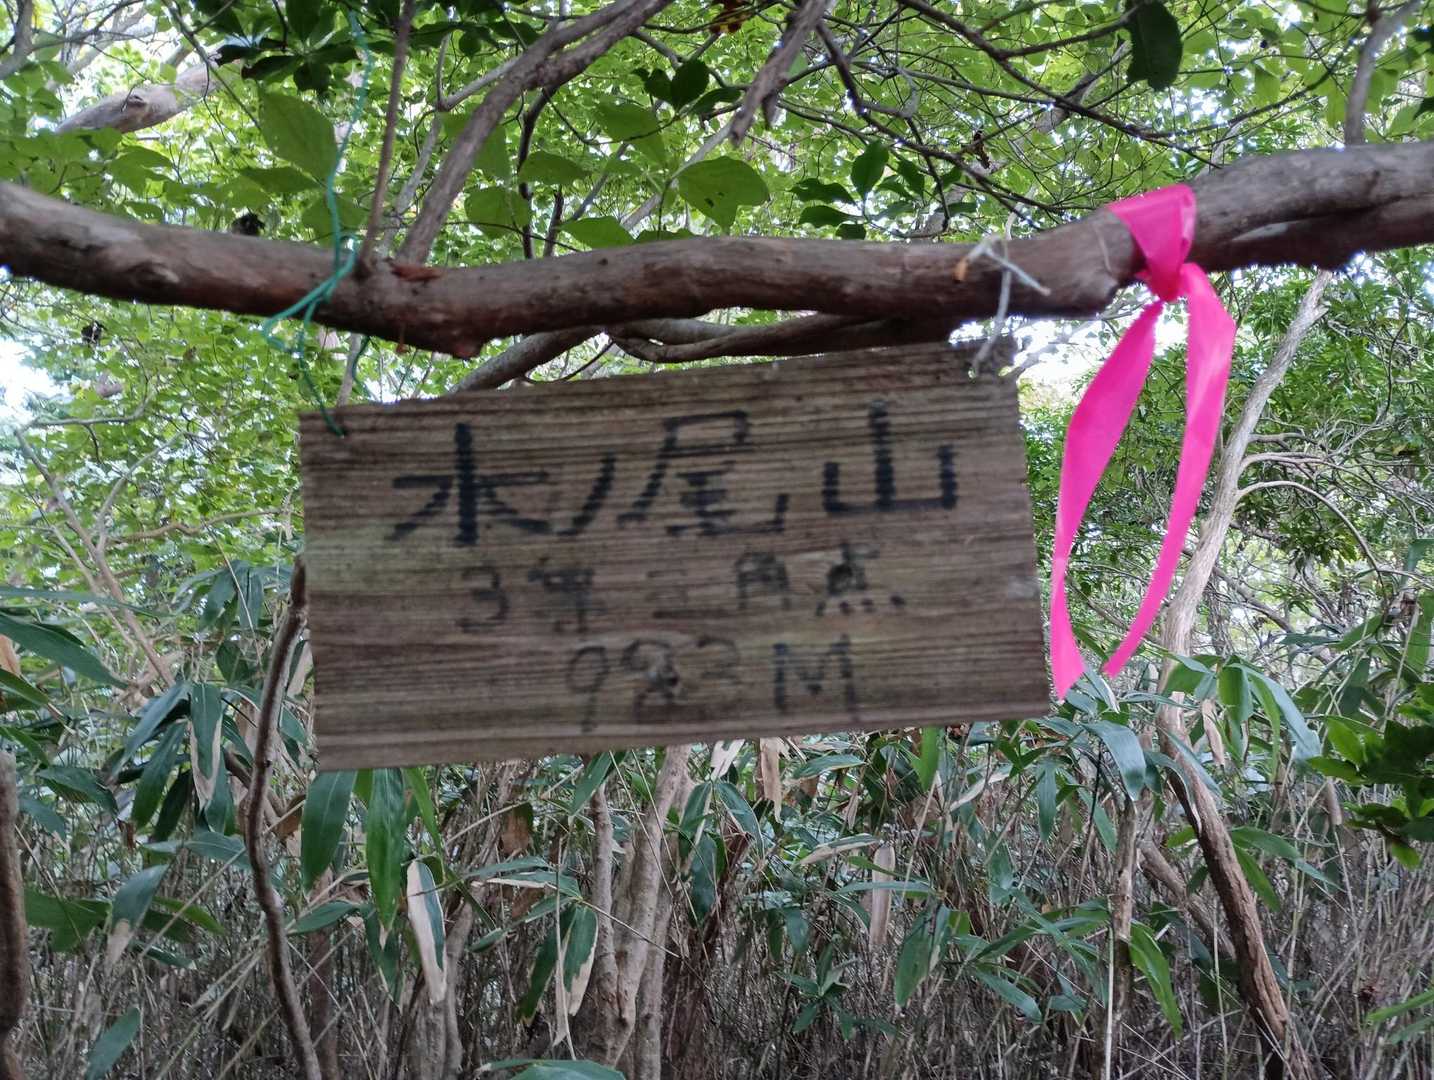 木ノ尾山
3等三角点
M